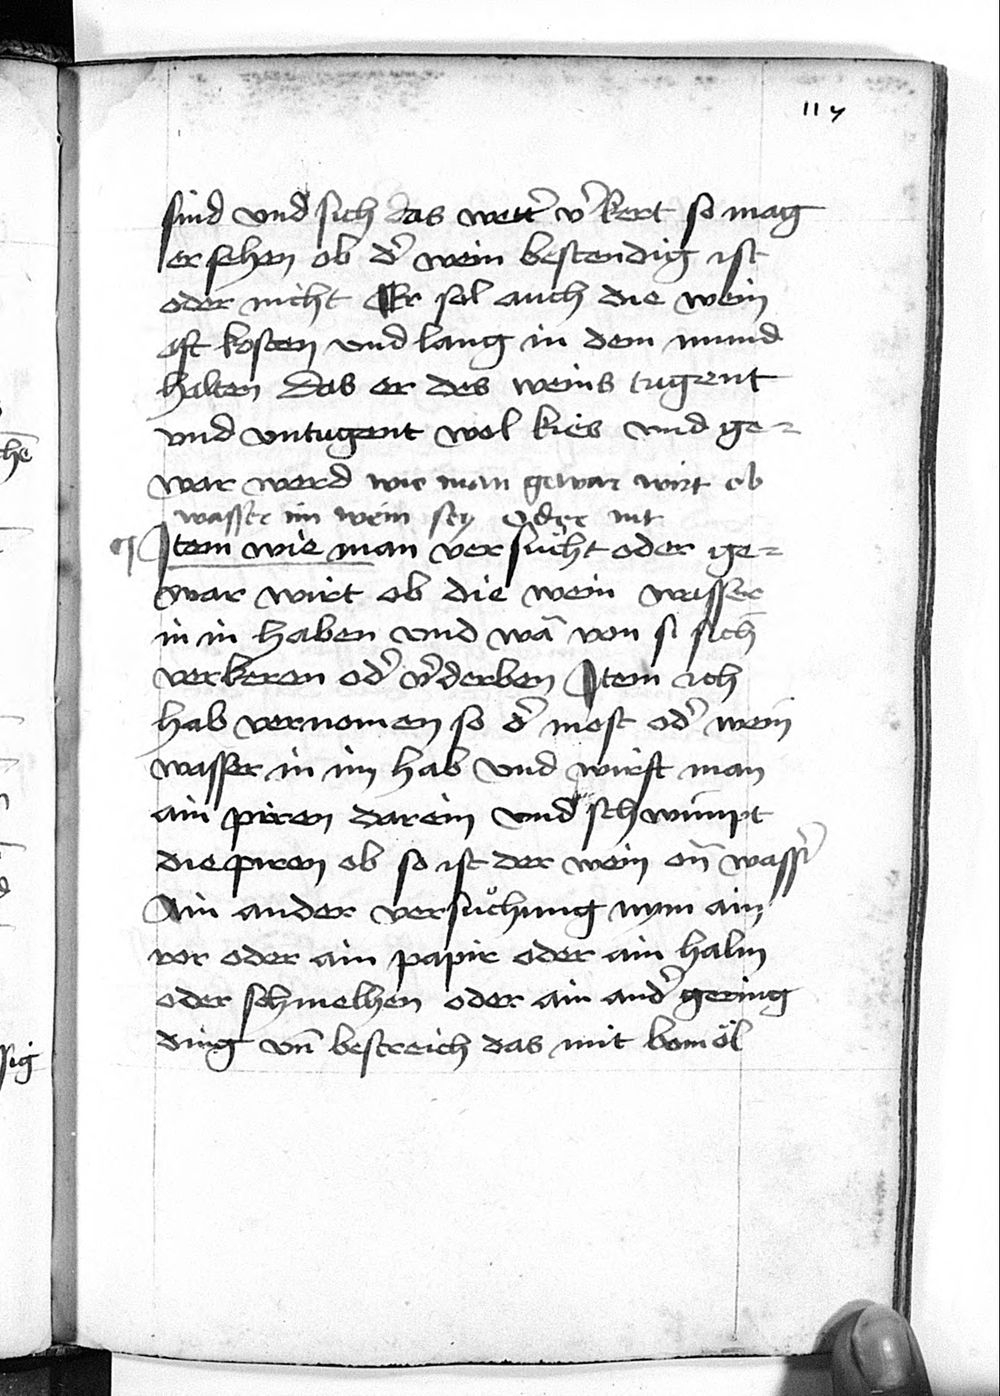 117
sind vnd sich das wett' v'kert so mag
er sehen ob d' wein bestendig ist
oder nicht Er sol auch die wein
oft kosten vnd lang in dem mund
halten das er des weins tugent
vnd vntugent wol kies vnd ge=
war werd wie man gewar wirt ob
wasser im wein sey oder nit
¶ Item wie man versůcht oder ge=
war wirt ob die wein wasser
in in haben vnd wā von si sich
verkeren od' v'derben Item ich
hab vernomen so d' most od' wein
wasser in im hab vnd wirft man
ain piren darein vnd schwimpt
die piren ob so ist der wein on̄ wass'
Ain ander versůchung nym ain
ror oder ain papir oder ain halm
oder schmelhen oder ain and' gering
ding vn̄ bestreich das mit bomöl